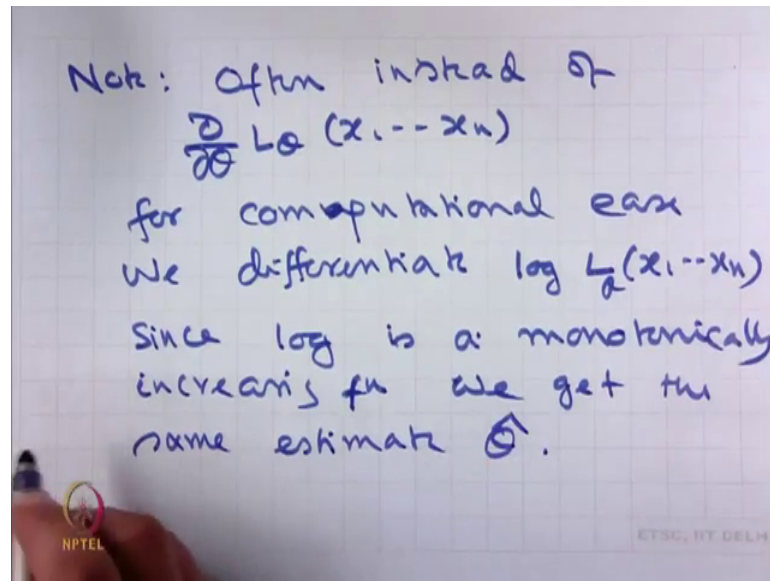 Note: Often instead of
∂/∂θ Lθ (x1 -- xn)
for computational ease
We differentiate log Lθ (x1 -- xn)
Since log is a monotonically
increasing fn we get the
same estimate θ̂.
NPTEL
ETSC, IIT DELHI